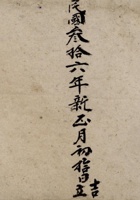 民國叁拾六年新正月初拾日立
吉